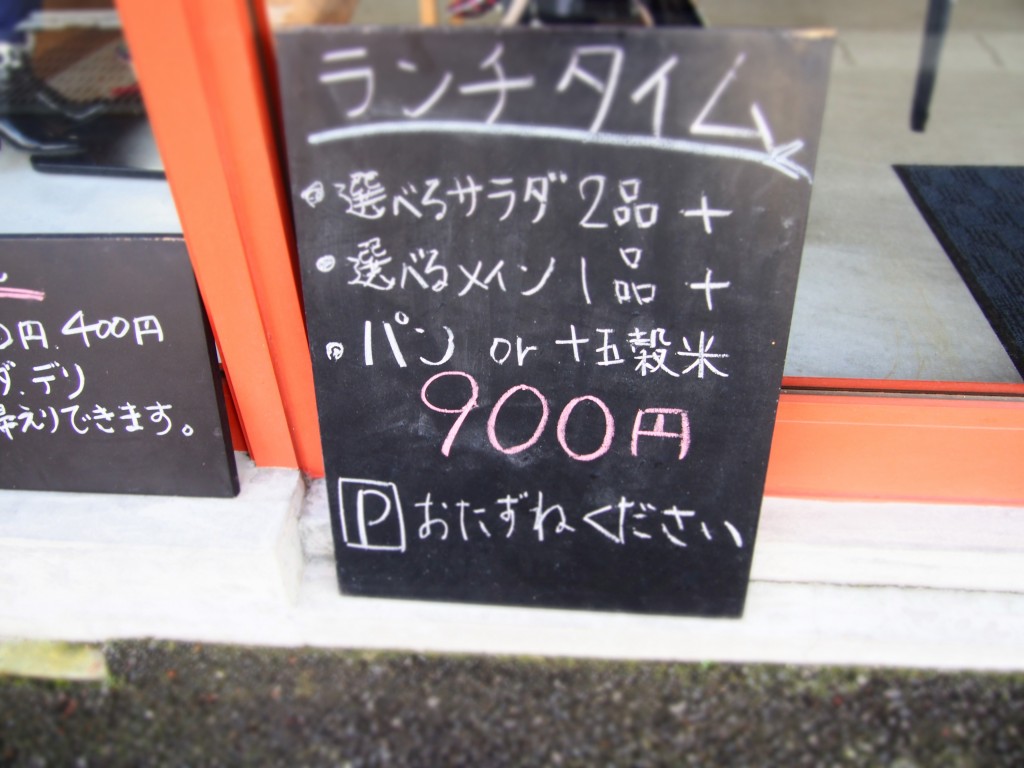 ランチタイム
選べるサラダ 2品 +
選べるメイン 1品 +
パン or 十五穀米
900円
P おたずねください
0円、400円
デリ
帰えりできます。